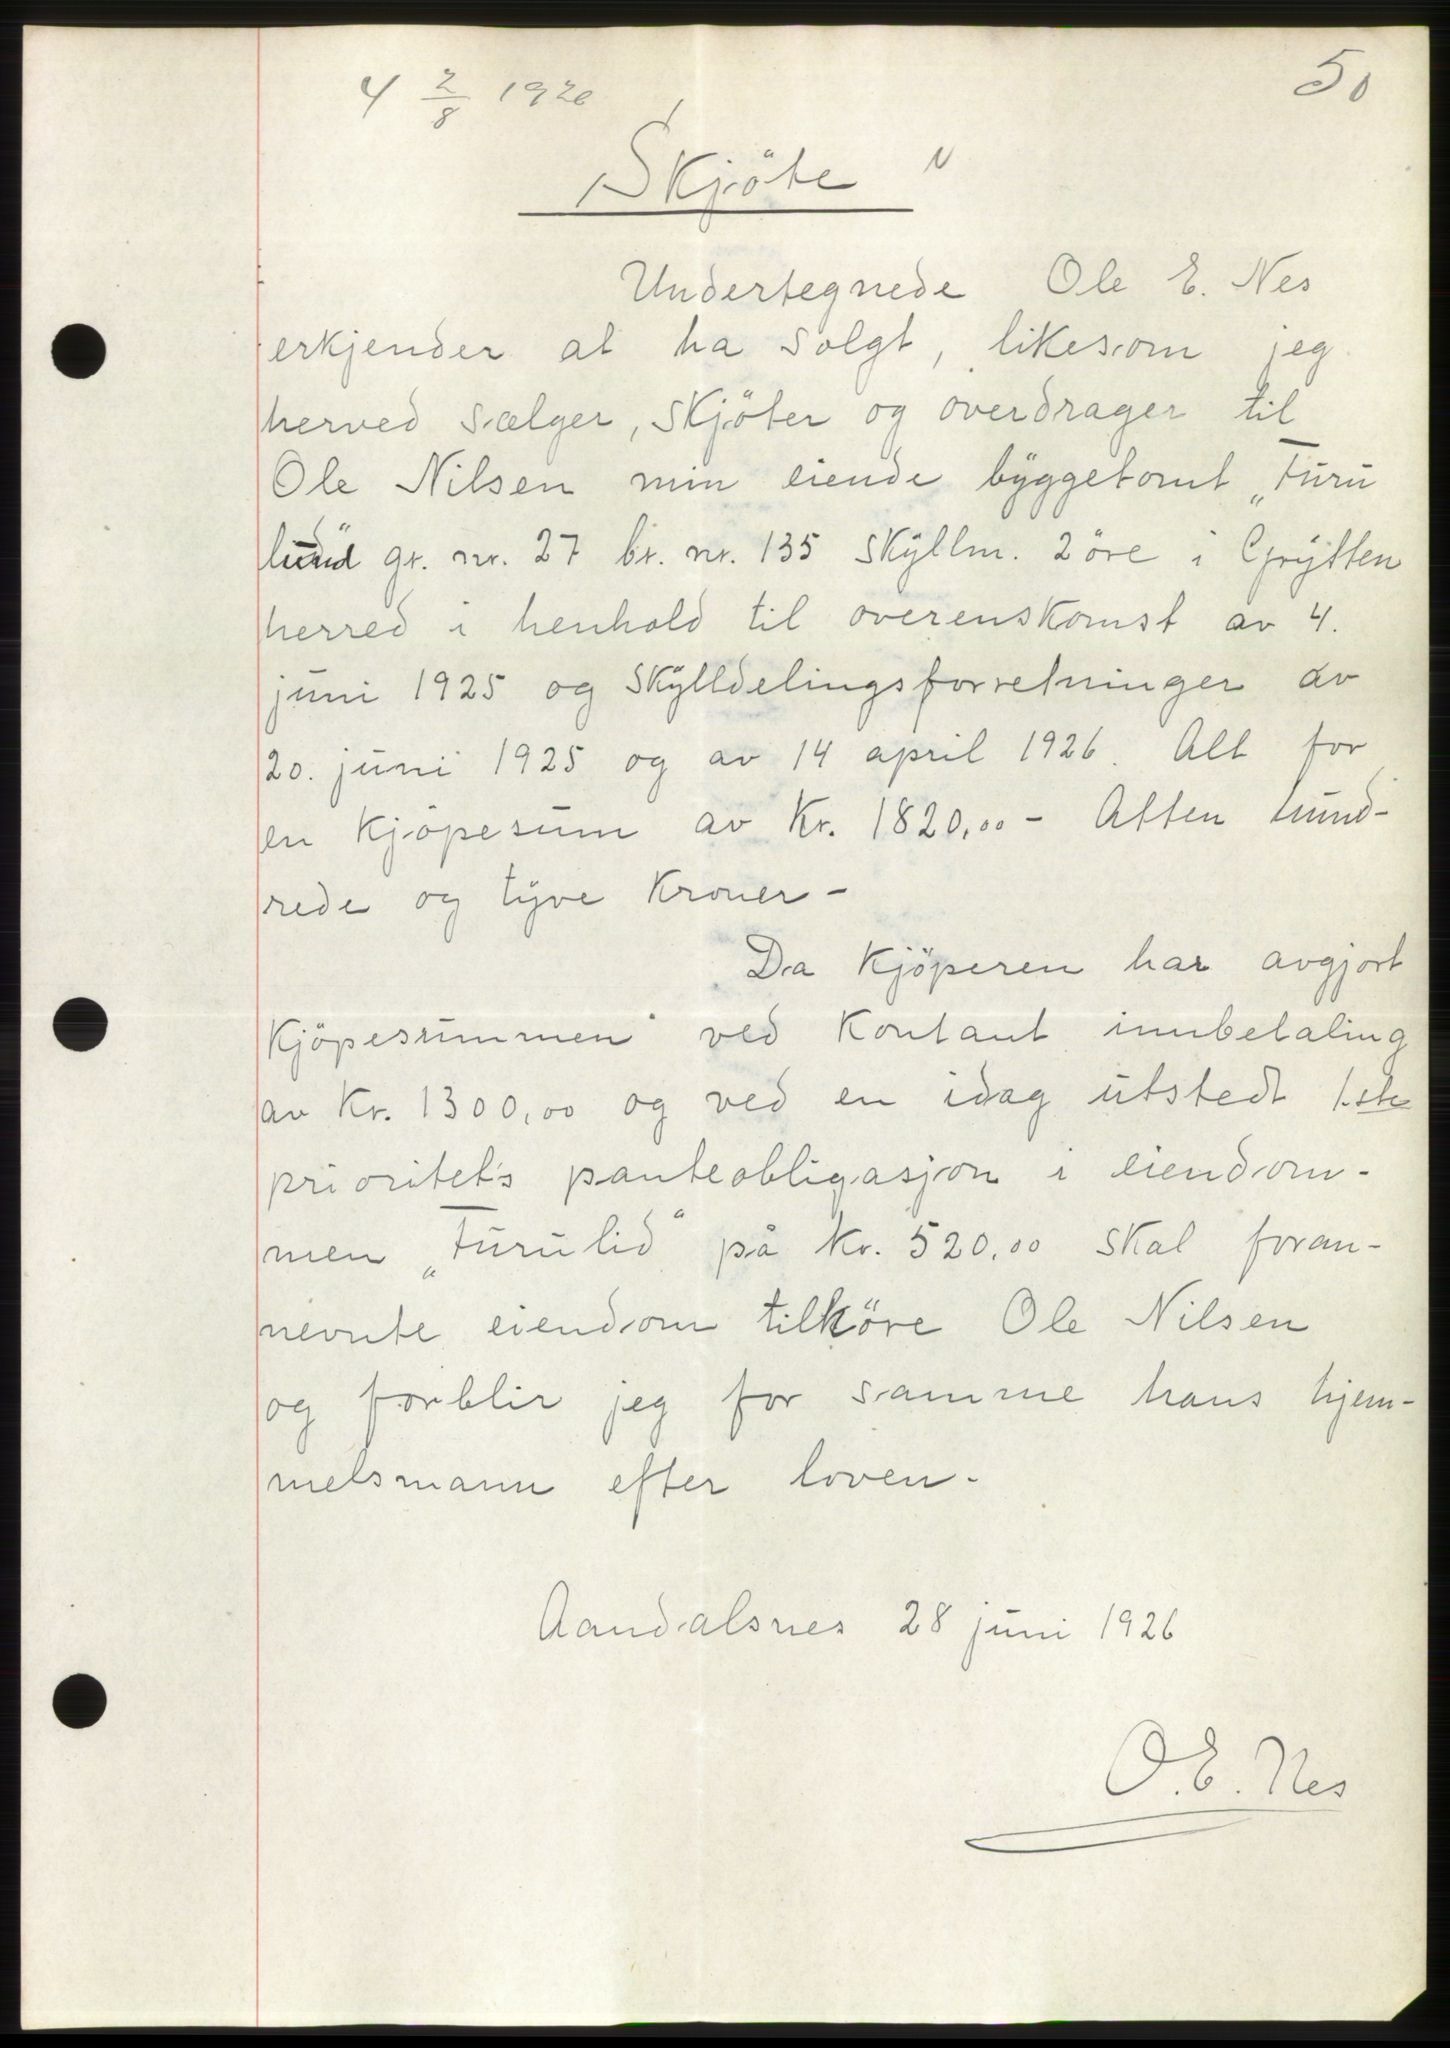 4 2/8 1926
50
„Skjöte"
Undertegnede Ole E. Nes
erkjender at ha solgt, likesom jeg
herved sælger, skjöter og overdrager til
Ole Nilsen min eiende byggetomt „Furu
lund" gr. nr. 27 br. nr. 135 skyllm. 2 öre i Grytten
herred i henhold til overenskomst av 4.
juni 1925 og skylldelingsforretninger av
20. juni 1925 og av 14 april 1926. Alt for
en kjöpesum av Kr. 1820,00 - Atten hund-
rede og tyve kroner -
Da kjöperen har avgjort
kjöpesummen ved kontant innbetaling
av Kr. 1300,00 og ved en idag utstedt 1.ste
prioritets panteobligasjon i eiendom-
men „Furulid" på kr. 520,00 skal foran-
nevnte eiendom tilhöre Ole Nilsen
og forblir jeg for samme hans hjem-
melsmann efter loven.
Aandalsnes 28 juni 1926
O. E. Nes